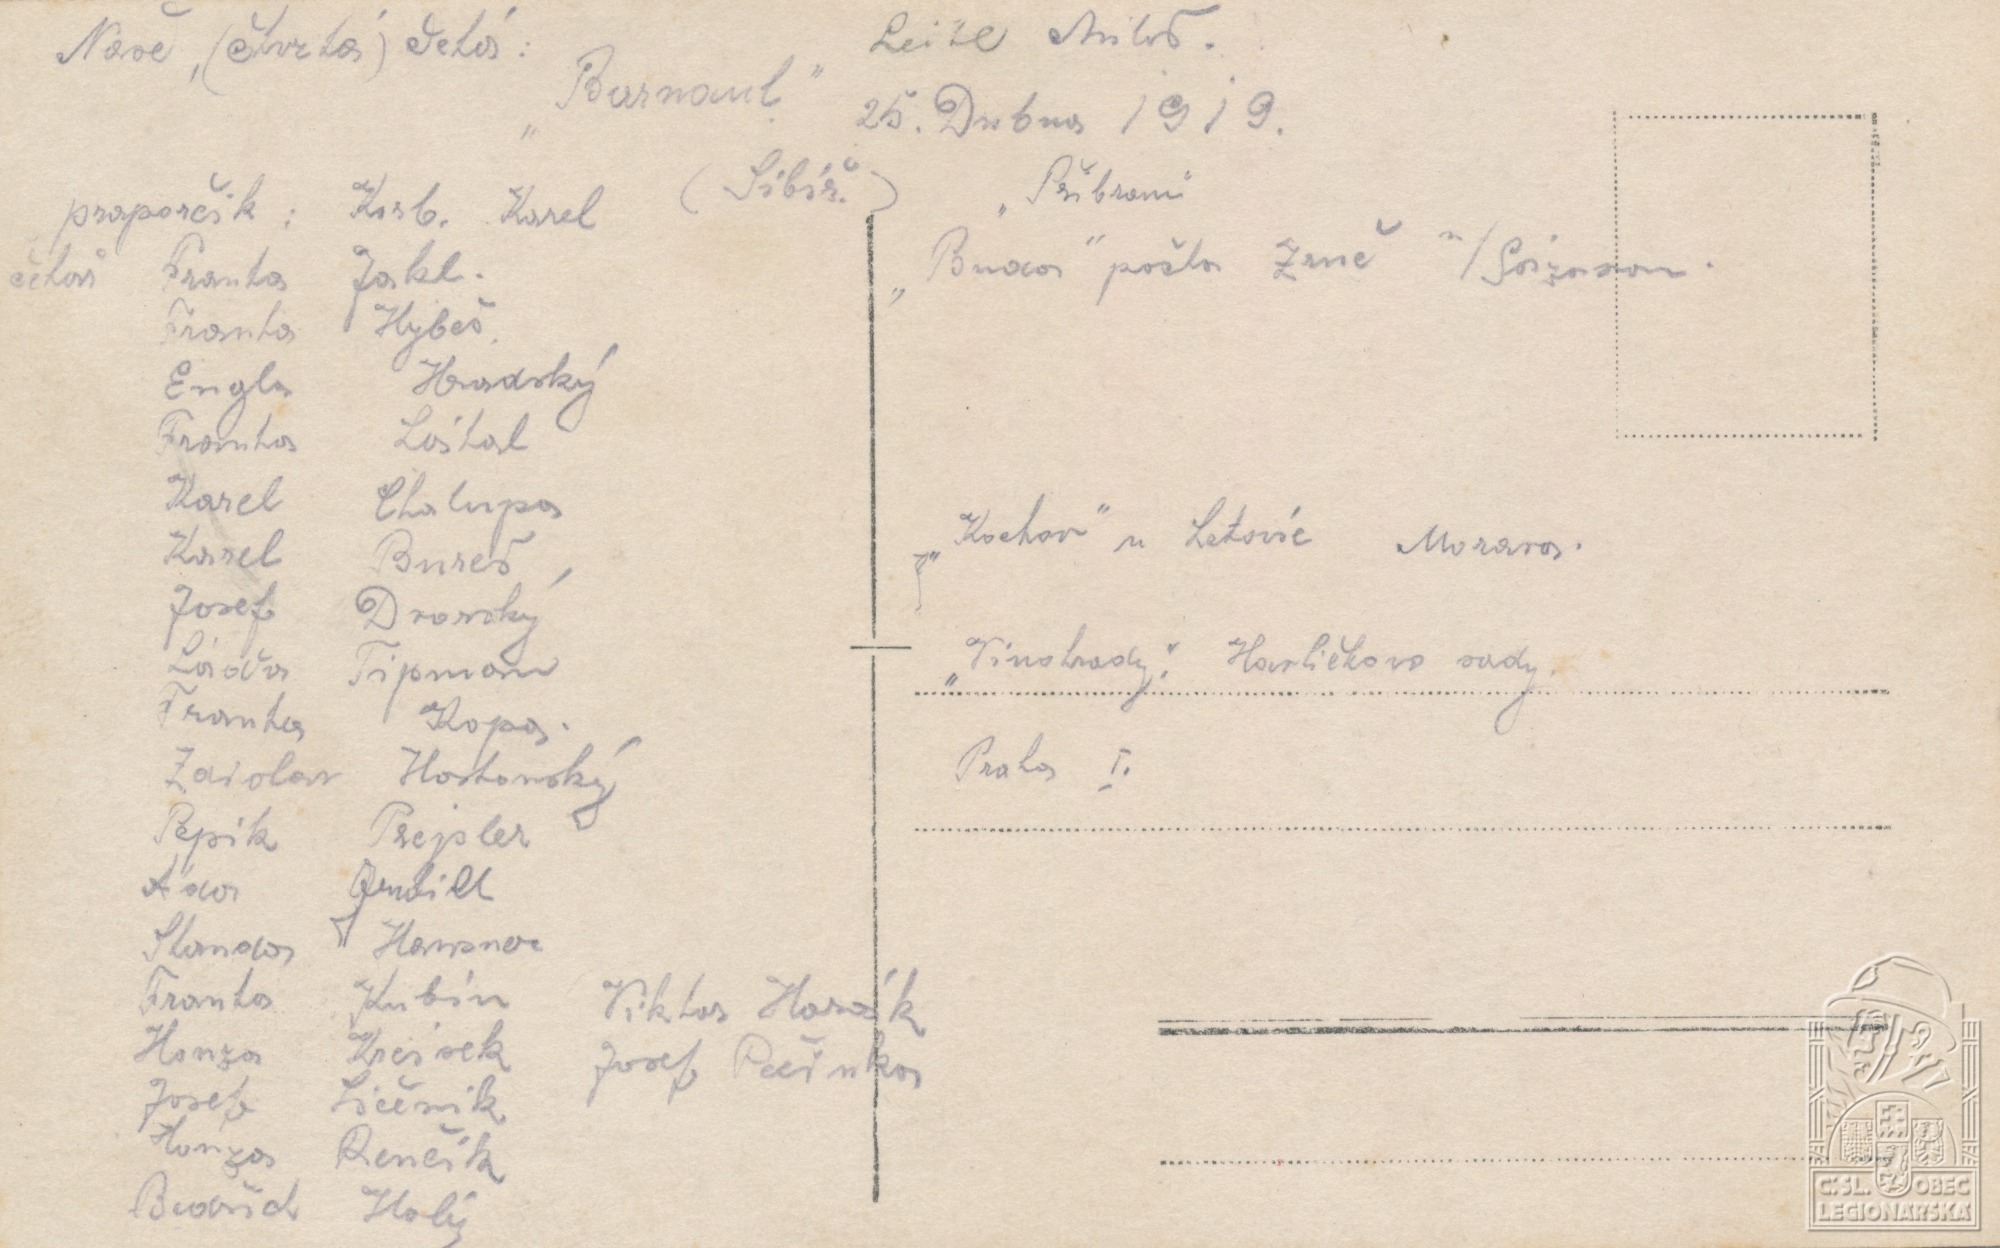 Naše, (čtvrtá) četa:
Leixe Miloš.
„Barnaul"
25. Dubna 1919.
(Sibiř.)
praporčík: Korb. Karel
četař Franta Jakl.
Franta Hybeš.
Engla Hradský
Franta Lástal
Karel Chalupa
Karel Bureš
Josef Dvorský
Láďa Tipman
Franta Kopa.
Hostonský
Pepík Prejsler
Áda
Standa Hausner
Franta Kubín
Honza Krejsek
Josef Ličeník
Honza Renčík
Budřich Holý
Viktor Horák
Josef Pečinka
„Příbram"
„Buda" pošta Zruč n/Sázavou.
„Kochov" u Letovic Morava.
„Vinohrady". Havlíčkovo sady.
Praha I.
Č. SL. OBEC
LEGIONÁŘSKÁ